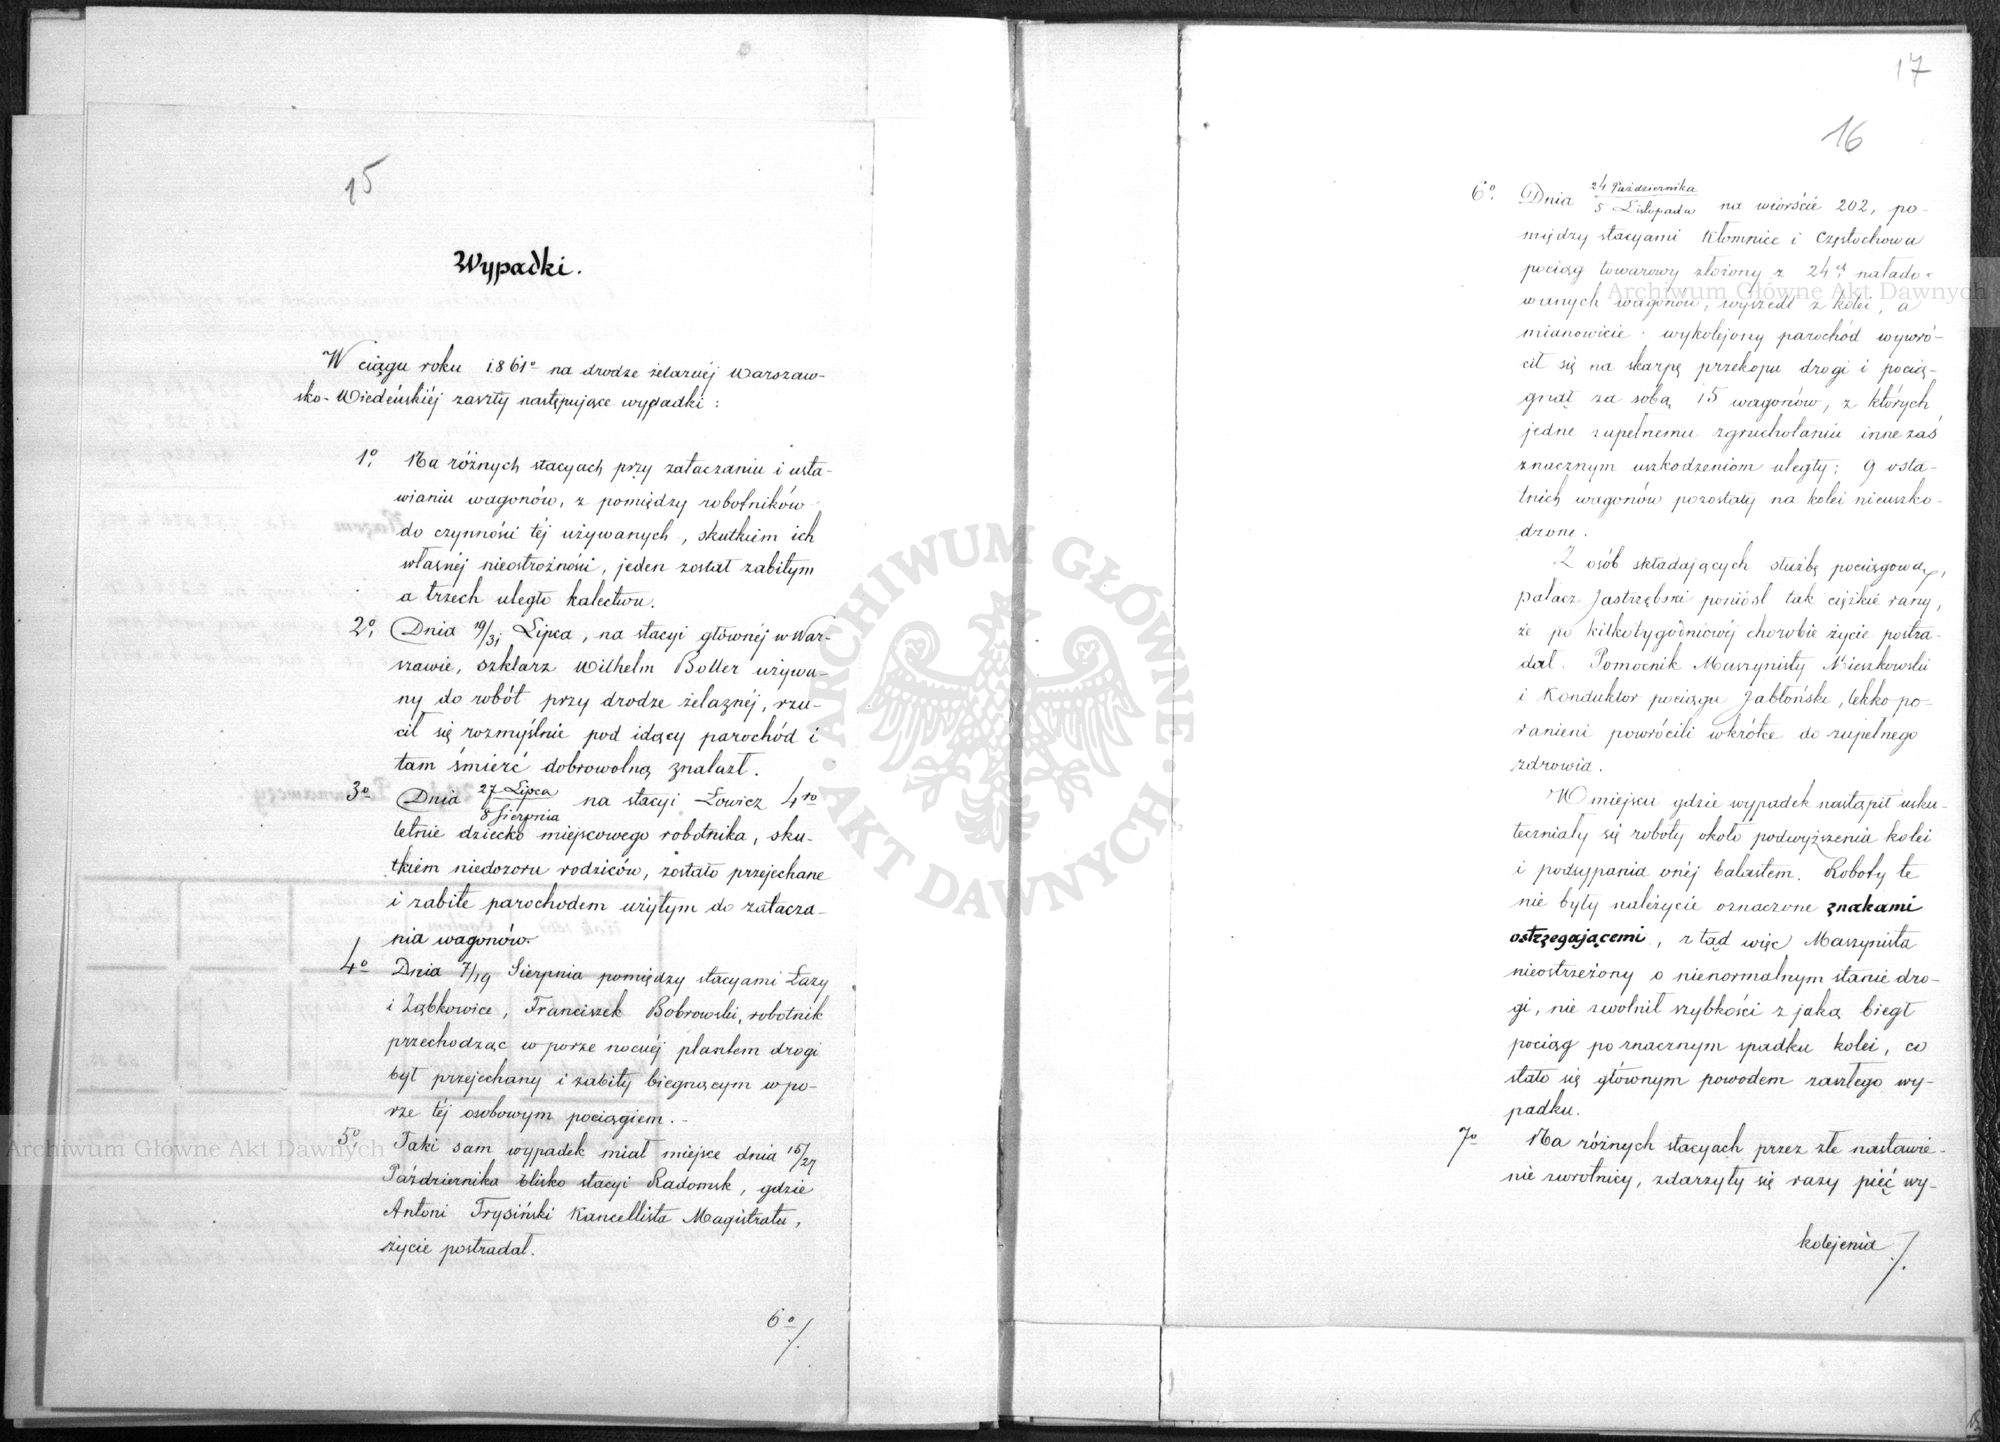 15
Wypadki.
W ciągu roku 1861o na drodze żelaznéj Warszaw-
sko-Wiedeńskiéj zaszły następujące wypadki:
1o, Na różnych stacyach przy zataczaniu i usta-
wianiu wagonów, z pomiędzy robotników
do czynności téj używanych, skutkiem ich
własnéj nieostrożności, jeden został zabitym
a trzech uległo kalectwu.
2o, Dnia 19/31 Lipca, na stacyi głównéj w War-
szawie, szklarz Wilhelm Boller używa-
ny do robót przy drodze żelaznéj, rzu-
cił się rozmyślnie pod idący parochód i
tam śmierć dobrowolną znalazł.
3o Dnia 27 Lipca/8 Sierpnia na stacyi Łowicz 4ro
letnie dziecko miejscowego robotnika, sku-
tkiem niedozoru rodziców, zostało przejechane
i zabite parochodem użytym do zatacza-
nia wagonów.
4o Dnia 7/19 Sierpnia pomiędzy stacyami Łazy
i Ząbkowice, Franciszek Bobrowski, robotnik
przechodząc w porze nocnéj plantem drogi
był przejechany i zabity biegnącym w po-
rze téj osobowym pociągiem.-
5o, Taki sam wypadek miał miejsce dnia 15/27
Października blisko stacyi Radomsk, gdzie
Antoni Trysiński Kancellista Magistratu,
życie postradał.
6o/.
17
16
6o. Dnia 24 Października/5 Listopada na wiorście 202, po-
między stacyami Kłomnice i Częstochowa
pociąg towarowy złożony z 24ch nałado-
wanych wagonów, wyszedł z kolei, a
mianowicie: wykolejony parochód wywró-
cił się na skarpę przekopu drogi i pocią-
gnął za sobą 15 wagonów, z których
jedne zupełnemu zgruchotaniu inne zaś
znacznym uszkodzeniom uległy; 9 osta-
tnich wagonów pozostały na kolei nieuszko-
dzone.
Z osób składających służbę pociągową,
palacz Jastrzębski poniósł tak ciężkie rany,
że po kilkotygodniowéj chorobie życie postra-
dał. Pomocnik Maszynisty Mieszkowski
i Konduktor pociągu Jabłoński, lekko po-
ranieni powrócili wkrótce do zupełnego
zdrowia.
W miejscu gdzie wypadek nastąpił usku-
teczniały się roboty około podwyższenia kolei
i podsypania onéj balastem. Roboty te
nie były należycie oznaczone znakami
ostrzegającemi, z tąd więc Maszynista
nieostrzeżony o nienormalnym stanie dro-
gi, nie zwolnił szybkości z jaką biegł
pociąg po znacznym spadku kolei, co
stało się głównym powodem zaszłego wy-
padku.
7o Na różnych stacyach przez złe nastawie-
nie zwrotnicy, zdarzyły się razy pięć wy-
kolejenia/.
Archiwum Główne Akt Dawnych
Archiwum Główne Akt Dawnych
ARCHIWUM GŁÓWNE
AKT DAWNYCH